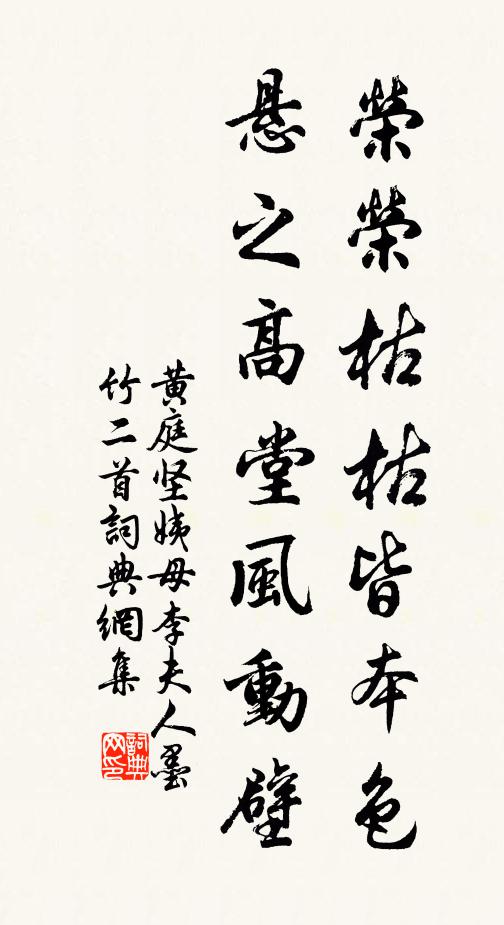 榮榮枯枯皆本色
悬之高堂風動壁
黄庭坚姨母李夫人墨
竹二首詞典網集
詞典网印